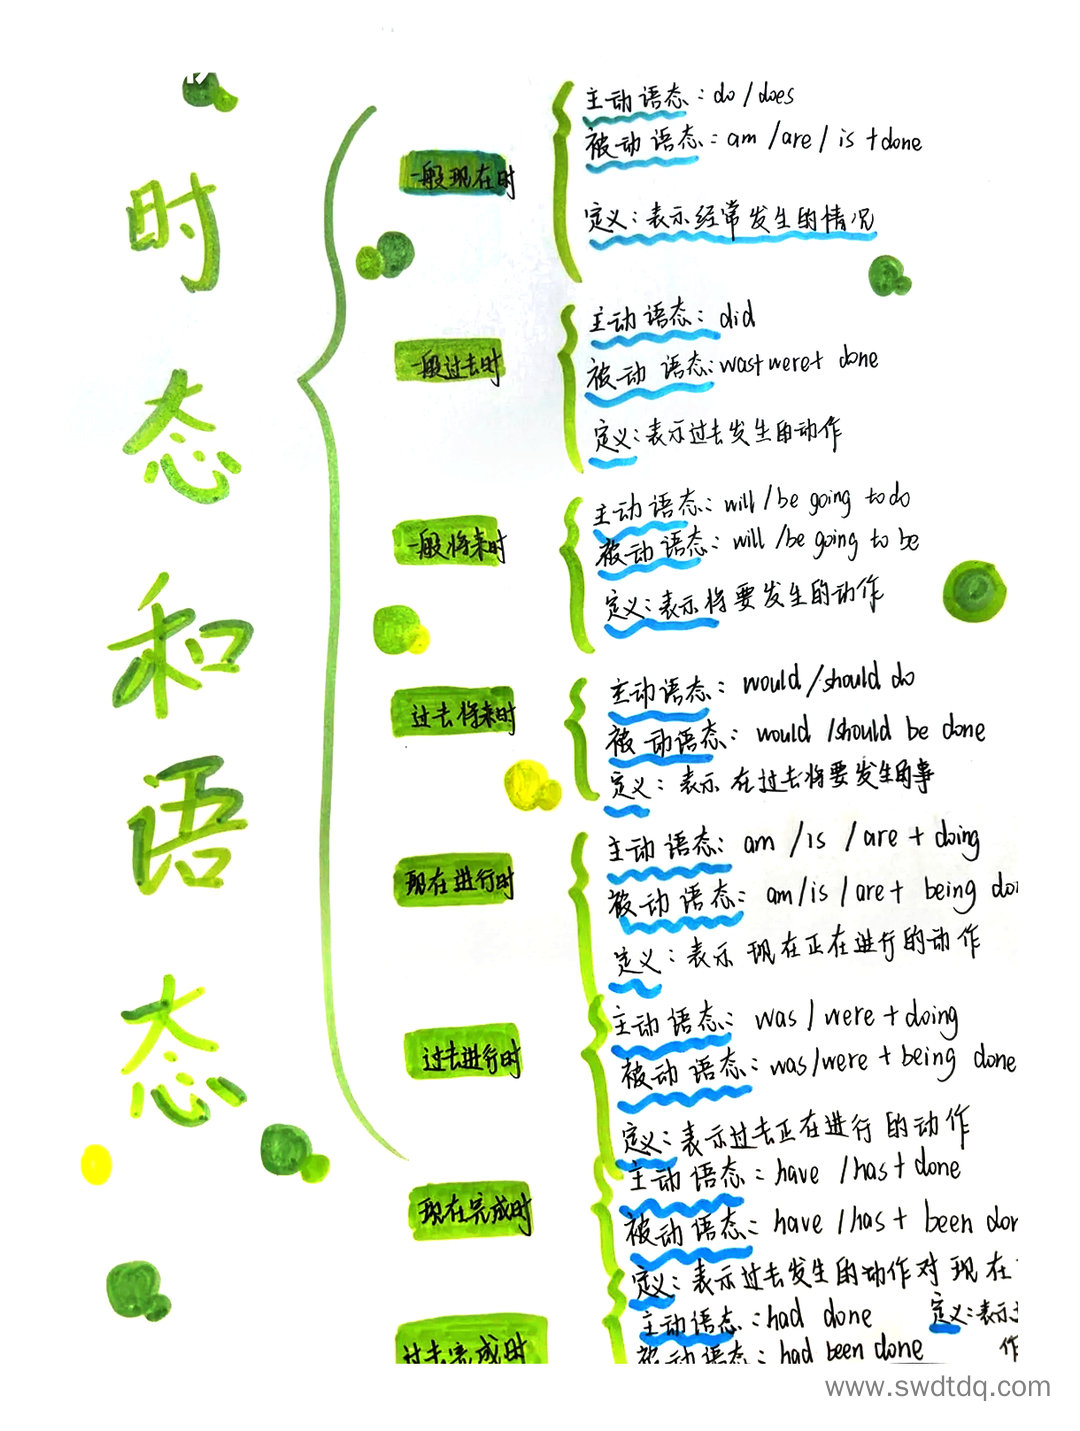 时态和语态
一般现在时
主动语态：do/does
被动语态：am/are/is+done
定义：表示经常发生的情况
一般过去时
主动语态：did
被动语态：was+were+ done
定义：表示过去发生的动作
一般将来时
主动语态：will/be going to do
被动语态：will/be going to be
定义：表示将要发生的动作
过去将来时
主动语态：would/should do
被动语态：would/should be done
定义：表示在过去将要发生的事
现在进行时
主动语态：am/is/are+doing
被动语态：am/is/are+ being
定义：表示现在正在进行的动作
过去进行时
主动语态：was/were+doing
被动语态：was/were+being done
定义：表示过去正在进行的动作
现在完成时
主动语态：have/has+done
被动语态：have/has+ been
定义：表示过去发生的动作对现在
过去完成时
主动语态：had done
定义：表示
作
被动语态：had been done
www.swdtdq.com